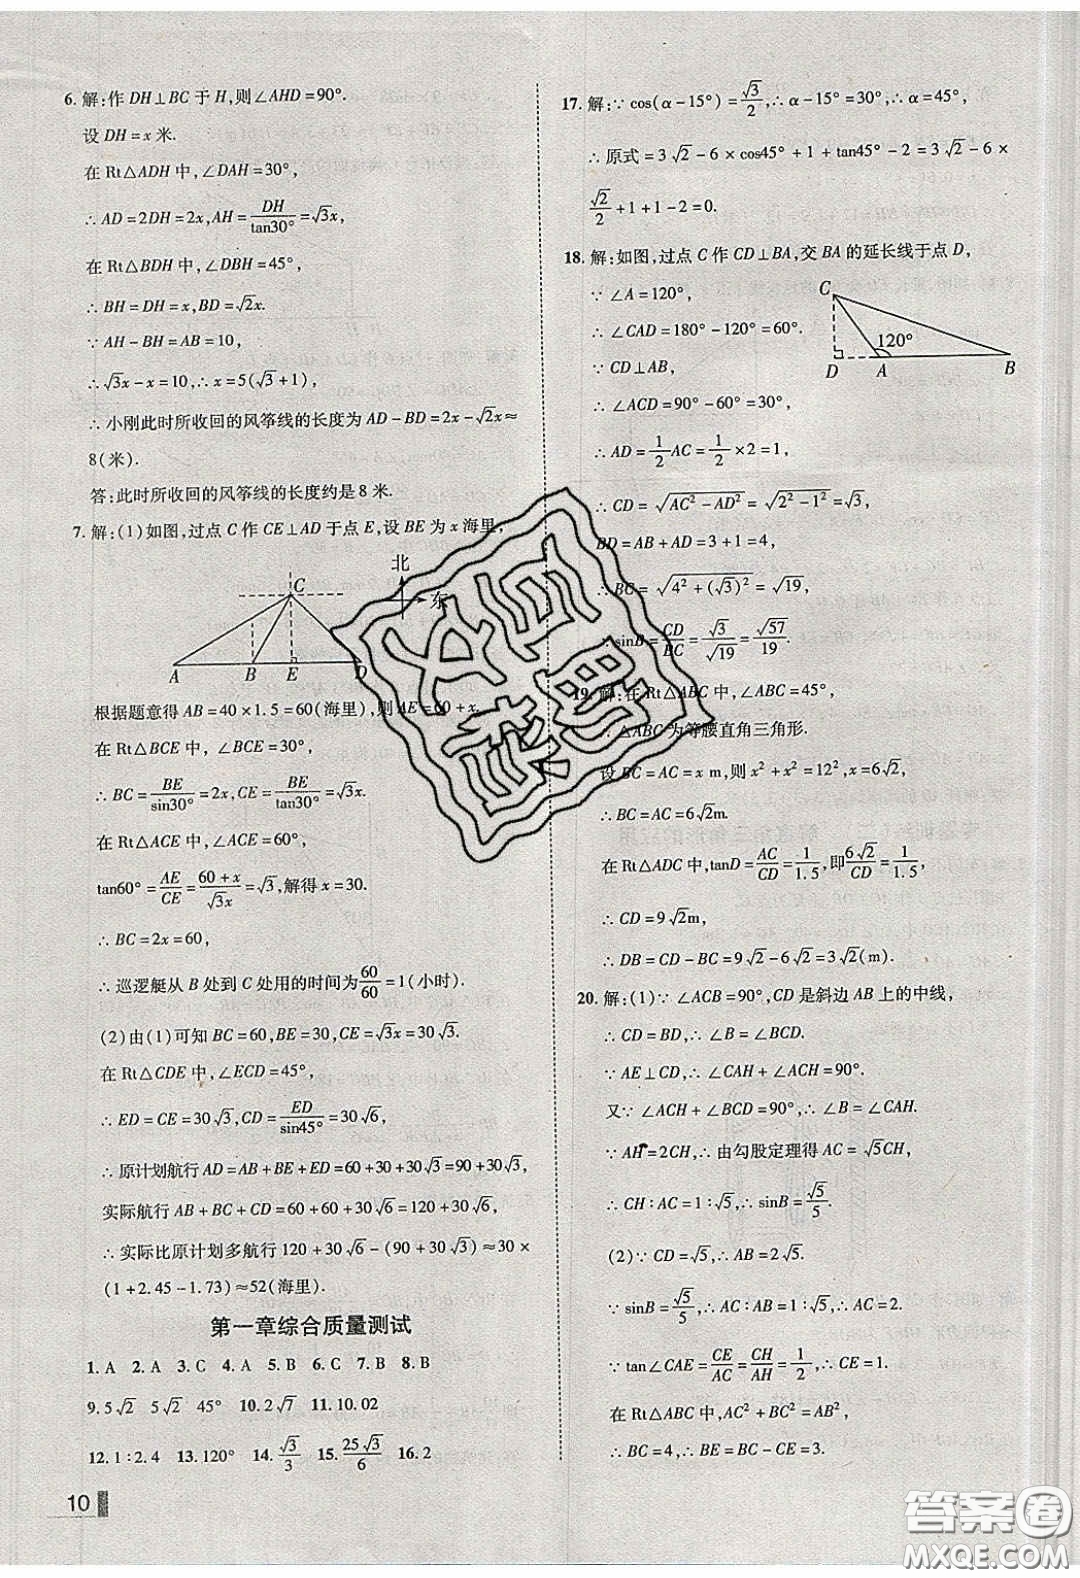 6. 解:作 DH⊥BC 于 H,则∠AHD=90°.
设 DH=x 米.
在 Rt△ADH 中,∠DAH=30°,
∴ AD=2DH=2x,AH=DH/tan30°=√3x,
在 Rt△BDH 中,∠DBH=45°,
∴ BH=DH=x,BD=√2x.
∵ AH-BH=AB=10,
∴ √3x-x=10,∴ x=5(√3+1),
∴ 小刚此时所收回的风筝线的长度为 AD-BD=2x-√2x≈
8(米).
答:此时所收回的风筝线的长度约是 8 米.
7. 解:(1)如图,过点 C 作 CE⊥AD 于点 E,设 BE 为 x 海里,
北
东
C
A B E D
根据题意得 AB=40×1.5=60(海里),则 AE=60+x.
在 Rt△BCE 中,∠BCE=30°,
∴ BC=BE/sin30°=2x,CE=BE/tan30°=√3x.
在 Rt△ACE 中,∠ACE=60°,
tan60°=AE/CE=(60+x)/√3x=√3,解得 x=30.
∴ BC=2x=60,
∴ 巡逻艇从 B 处到 C 处用的时间为60/60=1(小时).
(2)由(1)可知 BC=60,BE=30,CE=√3x=30√3.
在 Rt△CDE 中,∠ECD=45°,
∴ ED=CE=30√3,CD=ED/sin45°=30√6,
∴ 原计划航行 AD=AB+BE+ED=60+30+30√3=90+30√3,
实际航行 AB+BC+CD=60+60+30√6=120+30√6,
∴ 实际比原计划多航行 120+30√6-(90+30√3)≈30×
(1+2.45-1.73)≈52(海里).
第一章综合质量测试
1. A 2. A 3. C 4. A 5. B 6. C 7. B 8. B
9. 5√2 5√2 45° 10. 2√7 11. 10.02
12. 1∶2.4 13. 120° 14. √3/3 15. 25√3/6 16. 2
10
17. 解:∵ cos(α-15°)=√3/2,∴ α-15°=30°,∴ α=45°,
∴ 原式=3√2-6×cos45°+1+tan45°-2=3√2-6×
√2/2+1+1-2=0.
18. 解:如图,过点 C 作 CD⊥BA,交 BA 的延长线于点 D,
∵ ∠A=120°,
∴ ∠CAD=180°-120°=60°.
∵ CD⊥AB,
∴ ∠ACD=90°-60°=30°,
C
120°
D A B
∴ AD=1/2AC=1/2×2=1,
∴ CD=√(AC²-AD²)=√(2²-1²)=√3,
BD=AB+AD=3+1=4,
∴ BC=√(4²+(√3)²)=√19,
∴ sinB=CD/BC=√3/√19=√57/19.
19. 解:在 Rt△ABC 中,∠ABC=45°,
∴ △ABC 为等腰直角三角形.
设 BC=AC=x m,则 x²+x²=12²,x=6√2,
∴ BC=AC=6√2m.
在 Rt△ADC 中,tanD=AC/CD=1/1.5,即6√2/CD=1/1.5,
∴ CD=9√2m,
∴ DB=CD-BC=9√2-6√2=3√2(m).
20. 解:(1)∵ ∠ACB=90°,CD 是斜边 AB 上的中线,
∴ CD=BD,∴ ∠B=∠BCD.
∵ AE⊥CD,∴ ∠CAH+∠ACH=90°.
又∵ ∠ACH+∠BCD=90°,∴ ∠B=∠CAH.
∵ AH=2CH,∴ 由勾股定理得 AC=√5CH,
∴ CH∶AC=1∶√5,∴ sinB=√5/5.
(2)∵ CD=√5,∴ AB=2√5.
∵ sinB=√5/5,∴ AC∶AB=1∶√5,∴ AC=2.
∵ tan∠CAE=CE/AC=CH/AH=1/2,∴ CE=1.
在 Rt△ABC 中,AC²+BC²=AB²,
∴ BC=4,∴ BE=BC-CE=3.
答案卷
MXQE.COM